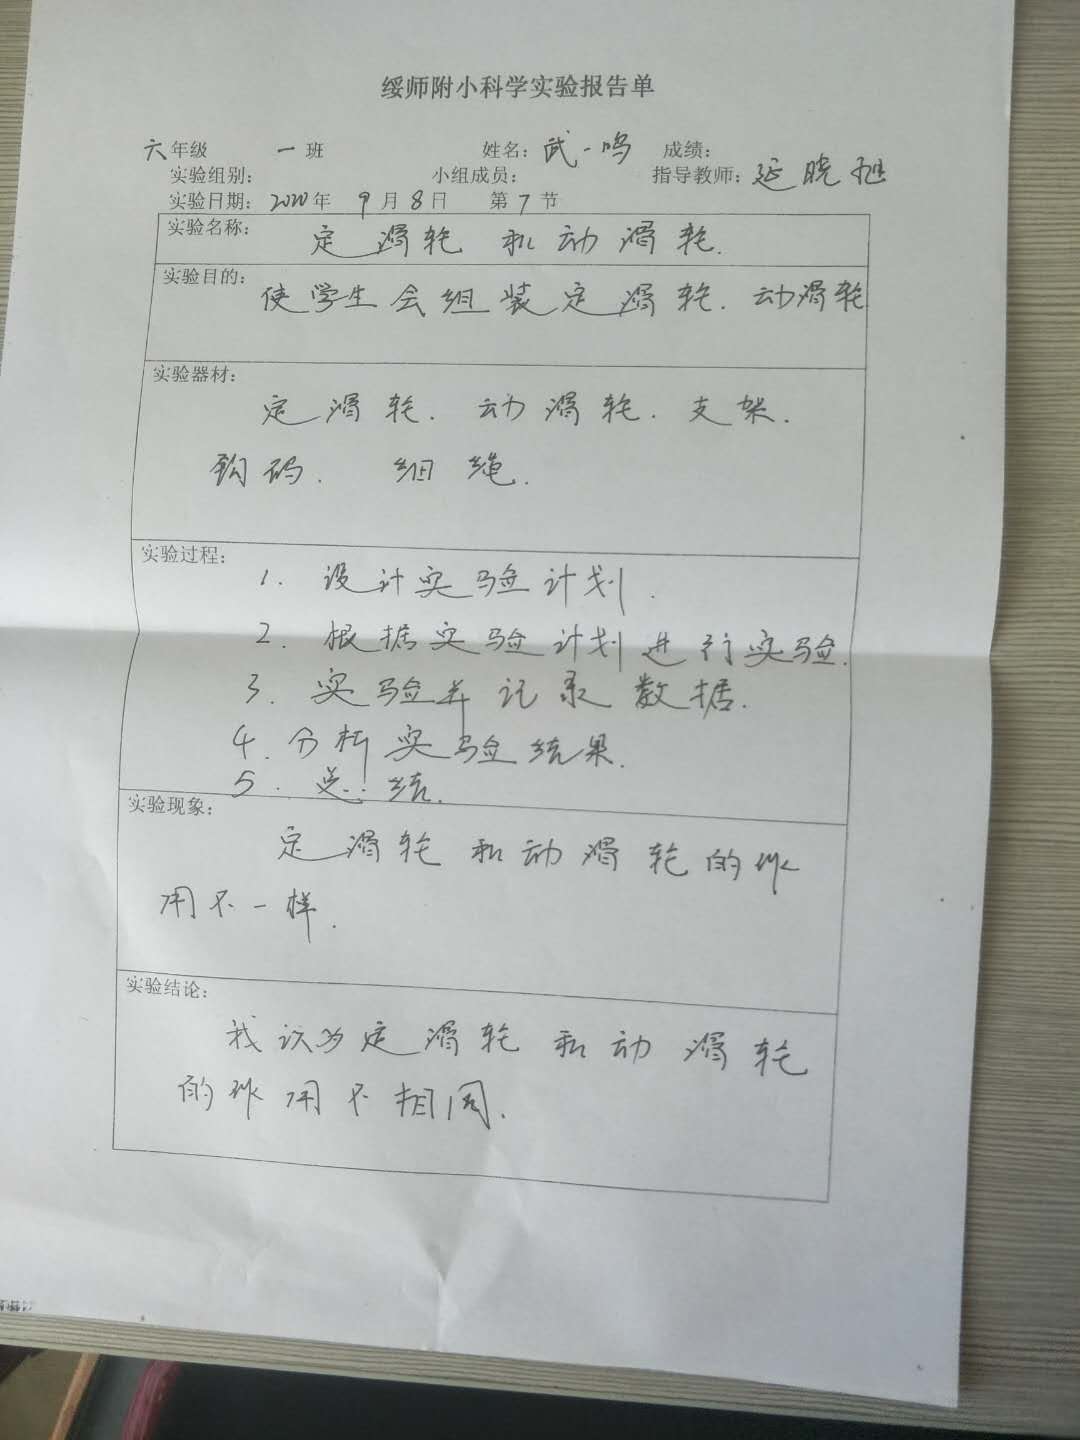 绥师附小科学实验报告单
六年级 一班 姓名：武一鸣 成绩：
实验组别： 小组成员： 指导教师：延晓旭
实验日期：2020年 9月8日 第7节
实验名称： 定滑轮和动滑轮.
实验目的： 使学生会组装定滑轮.动滑轮
实验器材：
定滑轮.动滑轮.支架.
钩码. 细绳.
实验过程：
1. 设计实验计划.
2. 根据实验计划进行实验.
3. 实验并记录数据.
4. 分析实验结果.
5. 总结.
实验现象：
定滑轮和动滑轮的作
用不一样.
实验结论：
我认为定滑轮和动滑轮
的作用不相同.